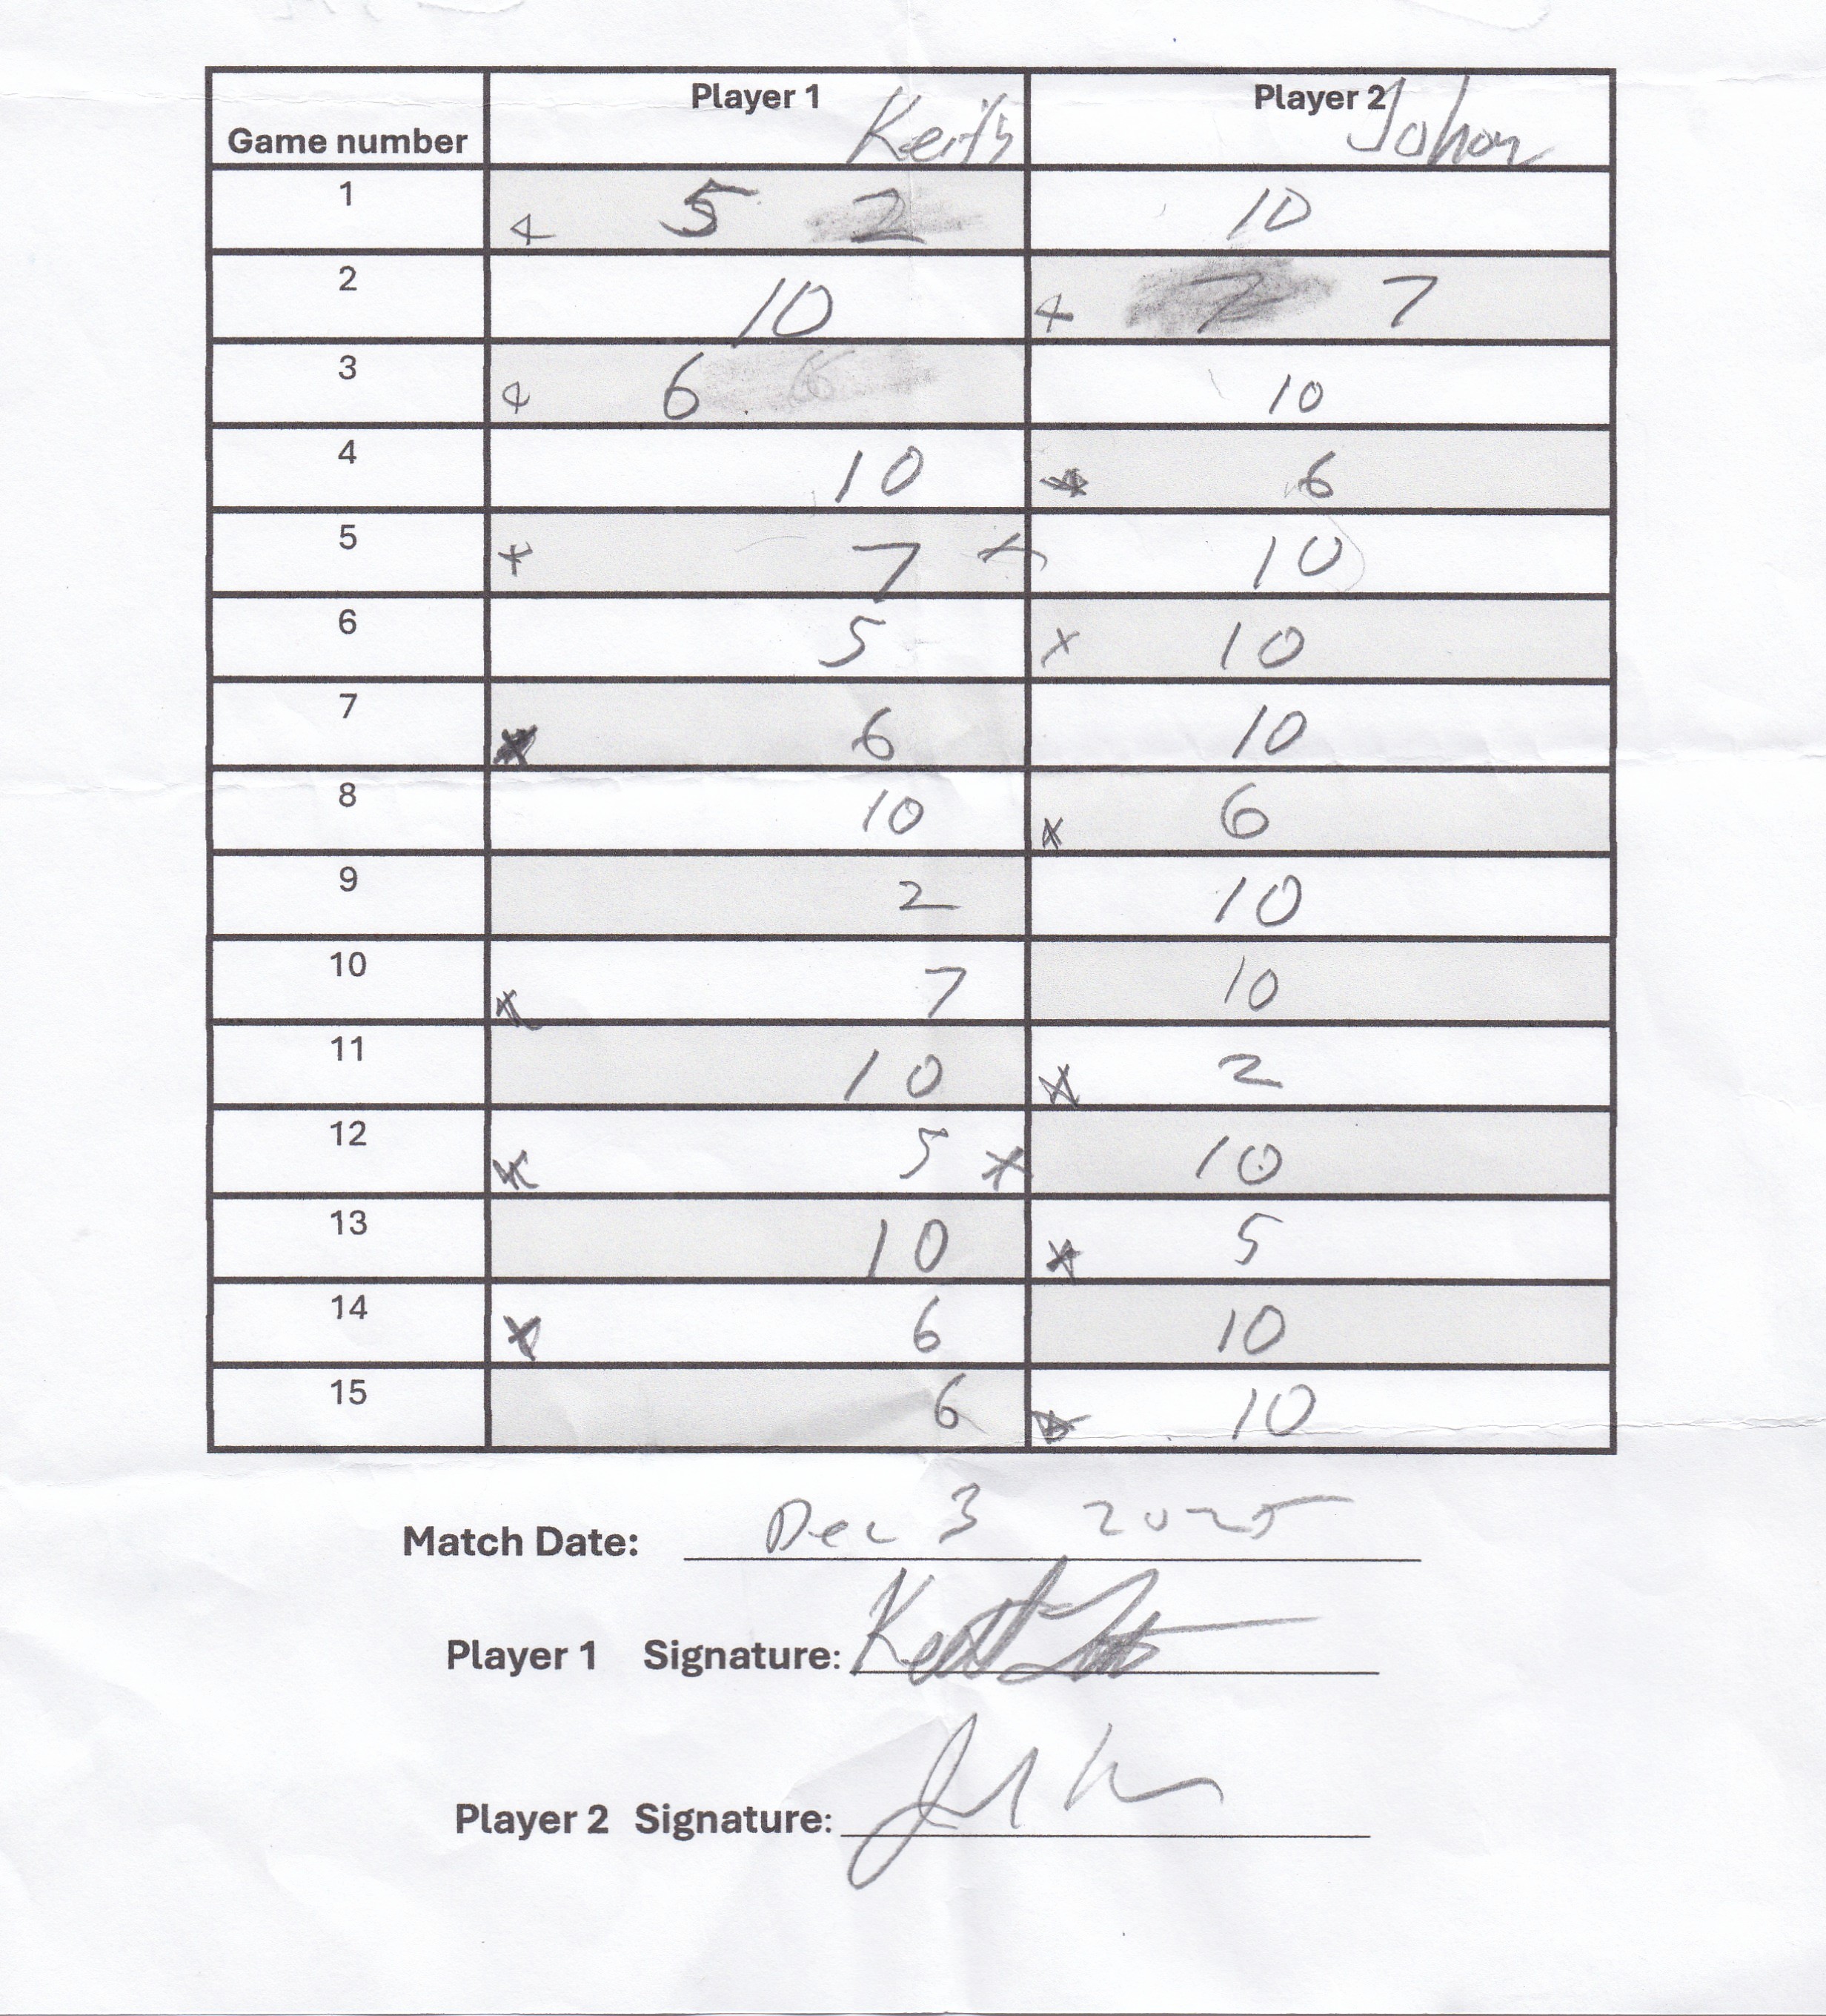 Player 1 Player 2
Game number Keith Johan
1 5 2 10
2 10 7 7
3 6 6 10
4 10 6
5 7 10
6 5 10
7 6 10
8 10 6
9 2 10
10 7 10
11 10 2
12 5 10
13 10 5
14 6 10
15 6 10
Match Date: Dec 3 2025
Player 1 Signature: Keith
Player 2 Signature: